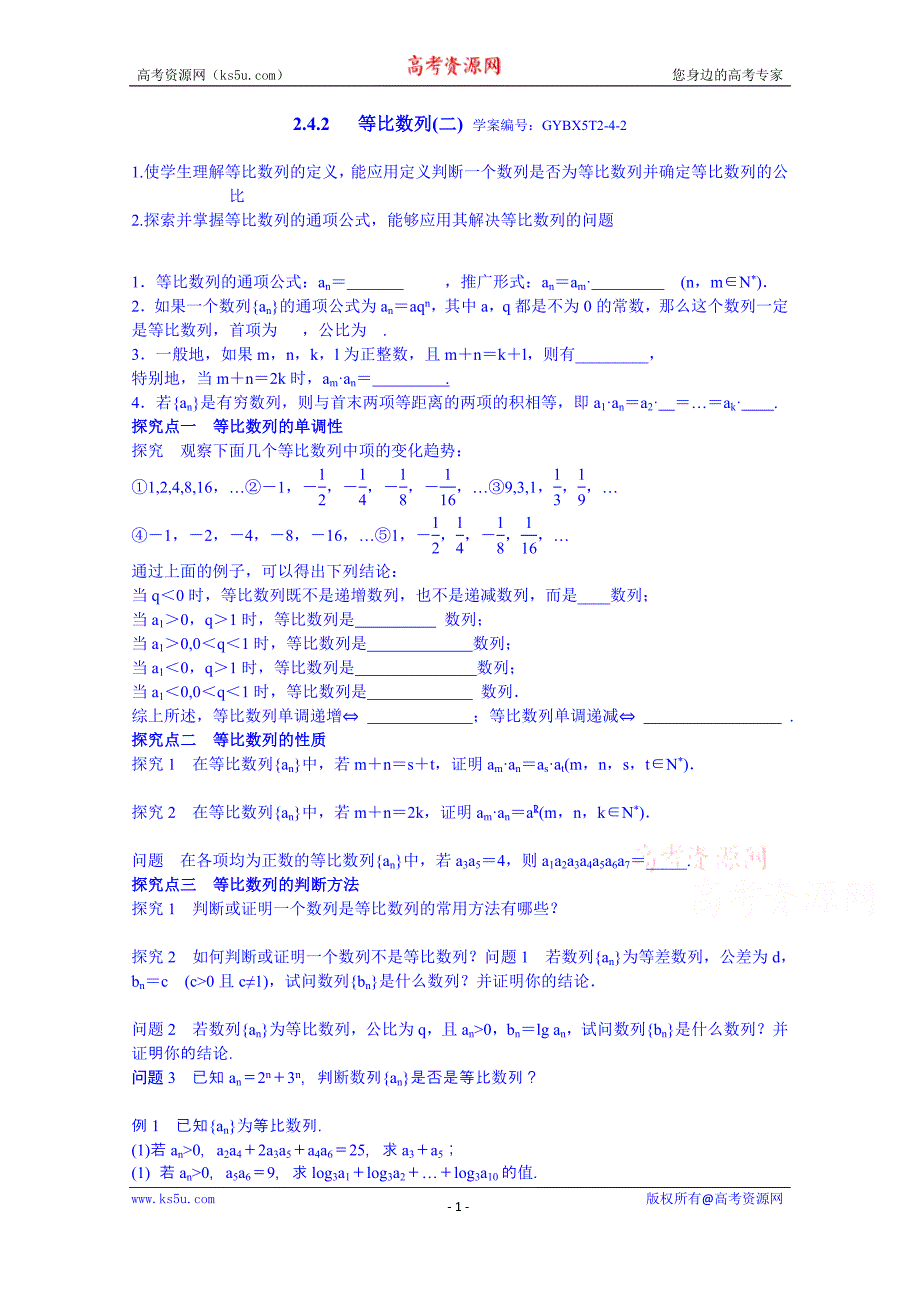 高考资源网（ks5u.com）
高考资源网
您身边的高考专家
2.4.2 等比数列(二) 学案编号：GYBX5T2-4-2
1.使学生理解等比数列的定义，能应用定义判断一个数列是否为等比数列并确定等比数列的公
比
2.探索并掌握等比数列的通项公式，能够应用其解决等比数列的问题
1．等比数列的通项公式：aₙ＝_______ ，推广形式：aₙ＝aₘ·_________ (n，m∈N*)．
2．如果一个数列{aₙ}的通项公式为aₙ＝aqⁿ，其中a，q都是不为0的常数，那么这个数列一定
是等比数列，首项为 ，公比为 ．
3．一般地，如果m，n，k，l为正整数，且m＋n＝k＋l，则有_________，
特别地，当m＋n＝2k时，aₘ·aₙ＝_________.
4．若{aₙ}是有穷数列，则与首末两项等距离的两项的积相等，即a₁·aₙ＝a₂·__＝…＝aₖ·____．
探究点一 等比数列的单调性
探究 观察下面几个等比数列中项的变化趋势：
①1,2,4,8,16，…②－1，－1/2，－1/4，－1/8，－1/16，…③9,3,1，1/3，1/9，…
④－1，－2，－4，－8，－16，…⑤1，－1/2，1/4，－1/8，1/16，…
通过上面的例子，可以得出下列结论：
当q＜0时，等比数列既不是递增数列，也不是递减数列，而是____数列；
当a₁＞0，q＞1时，等比数列是__________ 数列；
当a₁＞0,0＜q＜1时，等比数列是_____________数列；
当a₁＜0，q＞1时，等比数列是_______________数列；
当a₁＜0,0＜q＜1时，等比数列是_____________ 数列．
综上所述，等比数列单调递增⇔ _____________；等比数列单调递减⇔ _________________ ．
探究点二 等比数列的性质
探究1 在等比数列{aₙ}中，若m＋n＝s＋t，证明aₘ·aₙ＝aₛ·aₜ(m，n，s，t∈N*)．
探究2 在等比数列{aₙ}中，若m＋n＝2k，证明aₘ·aₙ＝a(m，n，k∈N*)．
问题 在各项均为正数的等比数列{aₙ}中，若a₃a₅＝4，则a₁a₂a₃a₄a₅a₆a₇＝_____.
高考资源网
探究点三 等比数列的判断方法
高考资源网
探究1 判断或证明一个数列是等比数列的常用方法有哪些？
探究2 如何判断或证明一个数列不是等比数列？问题1 若数列{aₙ}为等差数列，公差为d，
bₙ＝c (c>0且c≠1)，试问数列{bₙ}是什么数列？并证明你的结论．
问题2 若数列{aₙ}为等比数列，公比为q，且aₙ>0，bₙ＝lg aₙ，试问数列{bₙ}是什么数列？并
证明你的结论.
问题3 已知aₙ＝2ⁿ＋3ⁿ，判断数列{aₙ}是否是等比数列？
例1 已知{aₙ}为等比数列.
(1)若aₙ>0，a₂a₄＋2a₃a₅＋a₄a₆＝25，求a₃＋a₅；
(1) 若aₙ>0，a₅a₆＝9，求log₃a₁＋log₃a₂＋…＋log₃a₁₀的值.
www.ks5u.com
- 1 -
版权所有@高考资源网